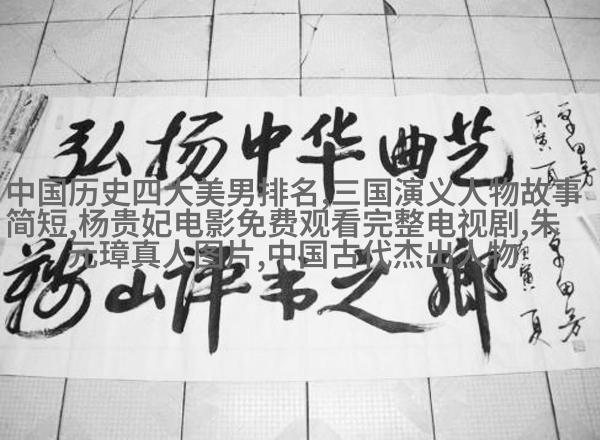 弘扬中华曲艺
中国历史四大美男排名,三国演义人物故事
简短,杨贵妃电影免费观看完整电视剧,朱
元璋真人图片,中国古代杰出人物
鞍山评书之鄉
单田芳
庚寅 夏
单田芳
庚寅 夏